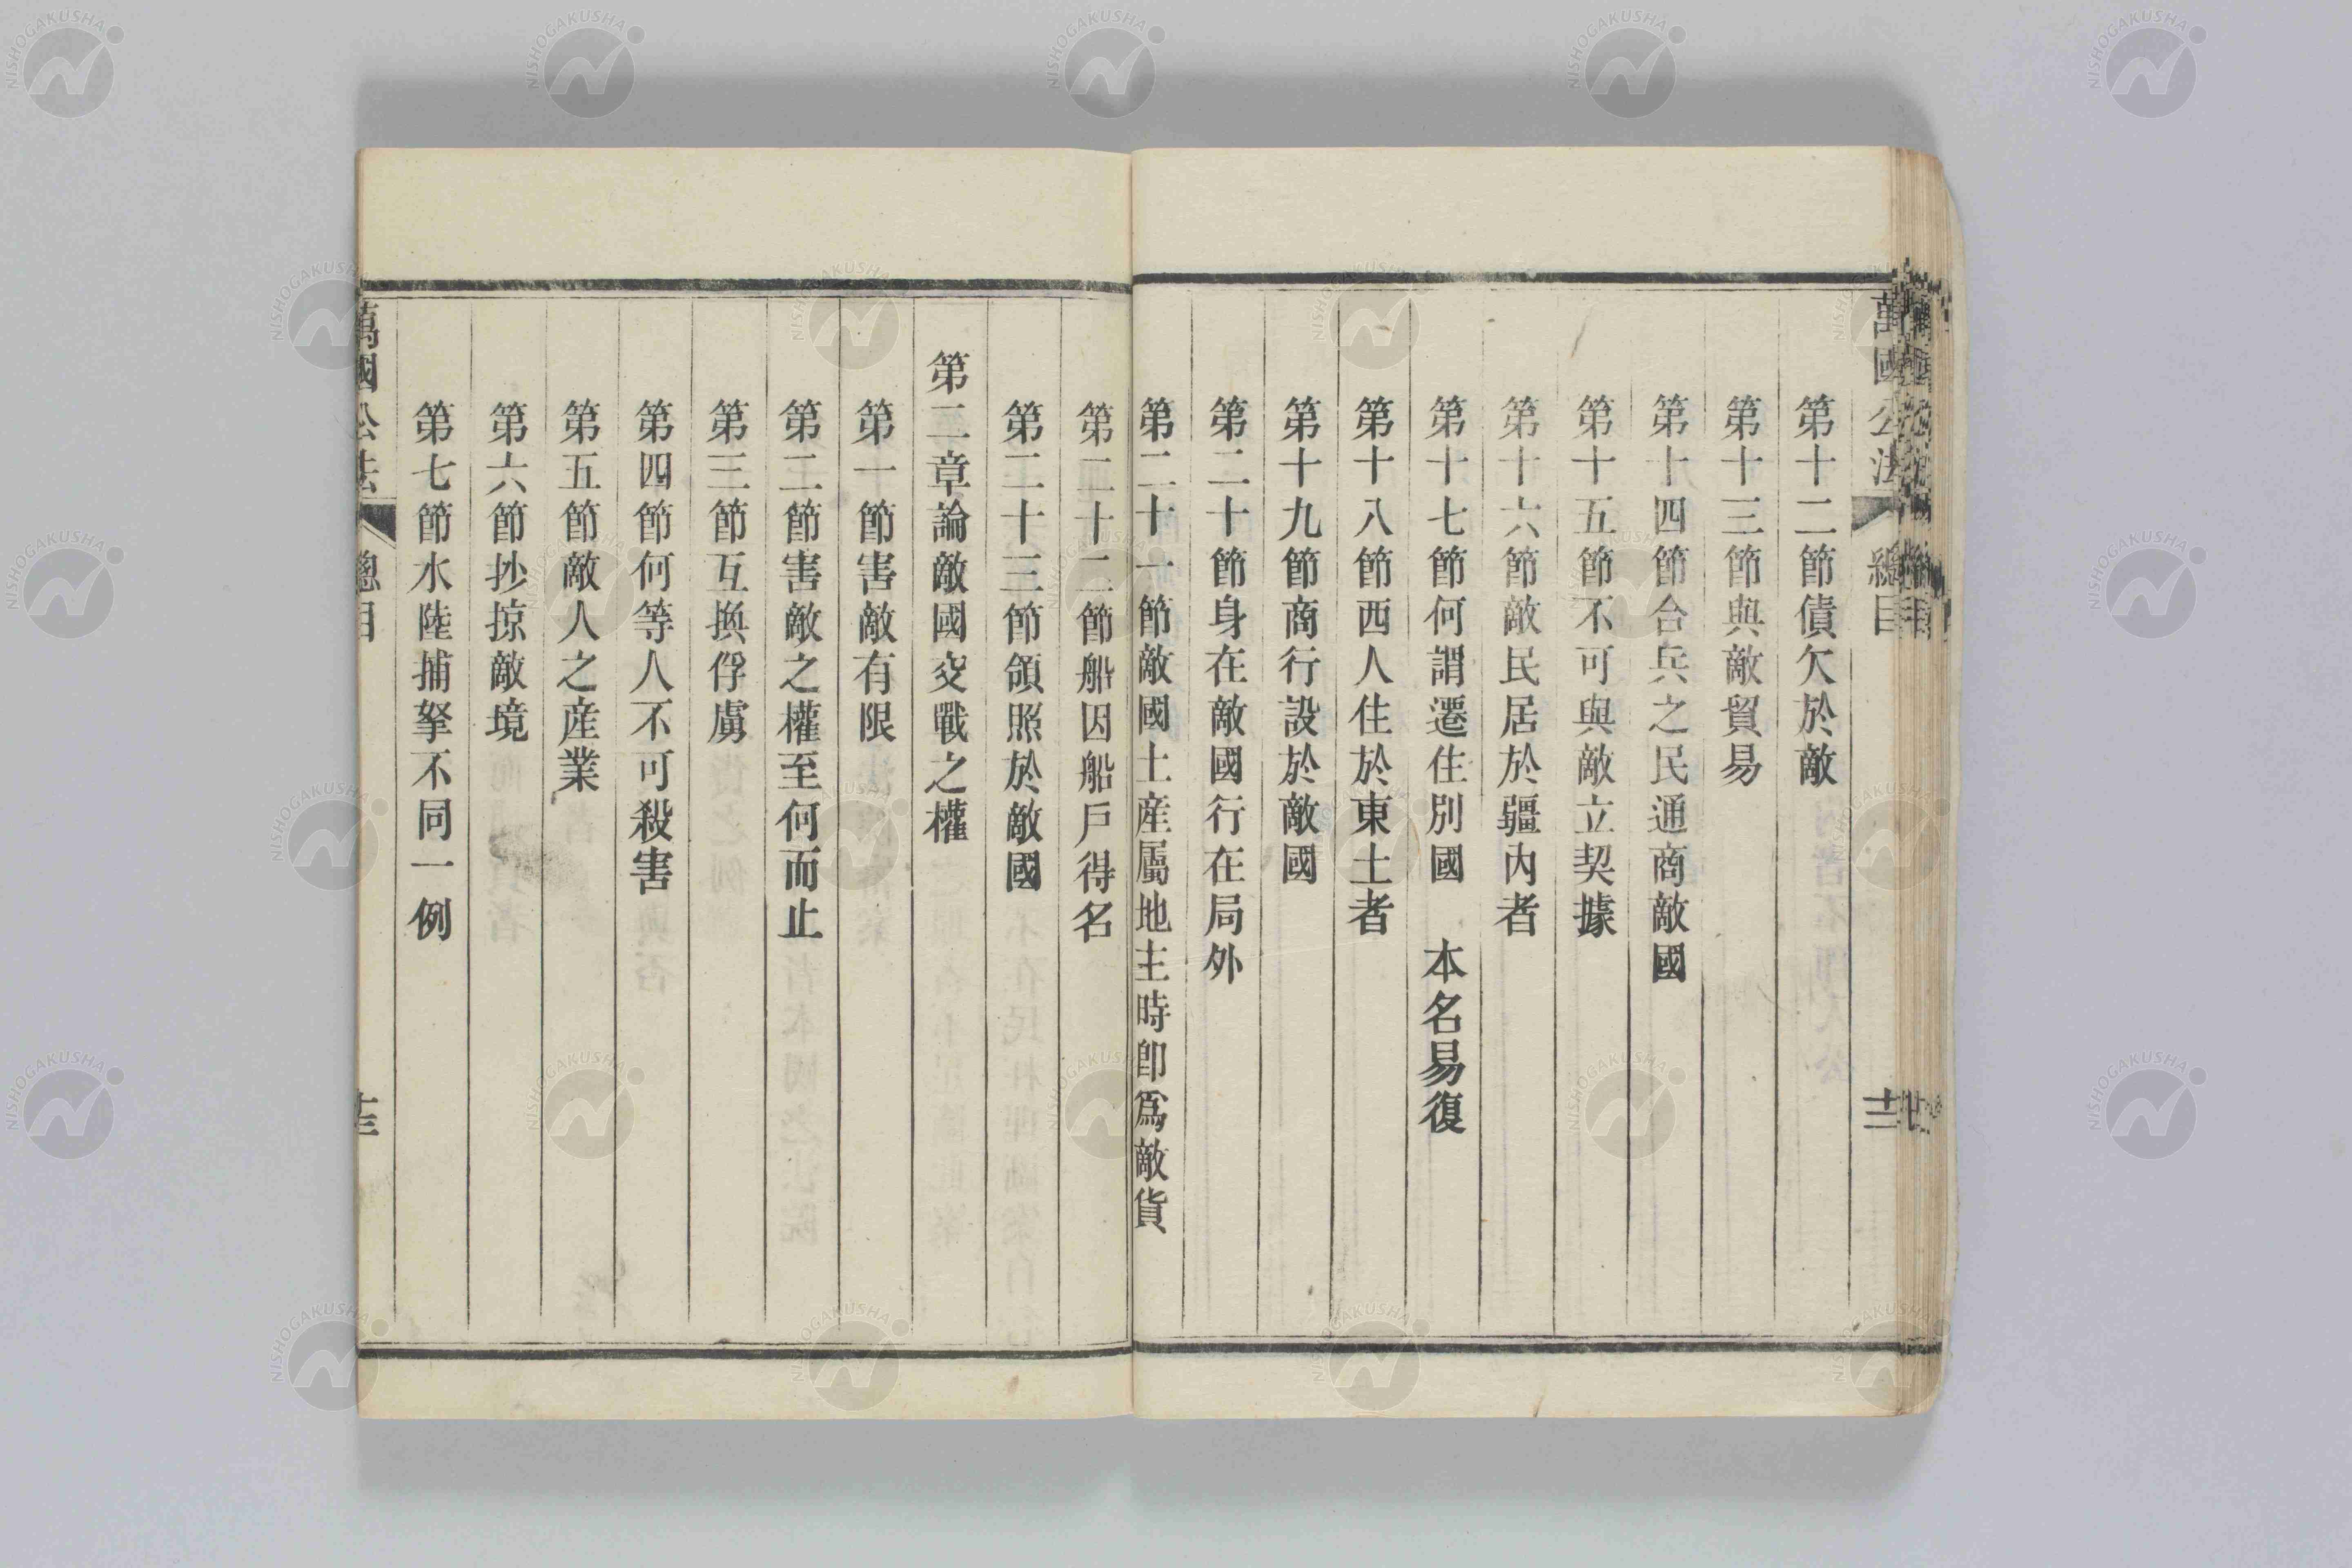 萬國公法 總目 十二
第十二節債欠於敵
第十三節與敵貿易
第十四節合兵之民通商敵國
第十五節不可與敵立契據
第十六節敵民居於疆內者
第十七節何謂遷住別國 本名易復
第十八節西人住於東土者
第十九節商行設於敵國
第二十節身在敵國行在局外
第二十一節敵國土産屬地主時卽爲敵貨
第二十二節船因船戶得名
第二十三節領照於敵國
第二章論敵國交戰之權
第一節害敵有限
第二節害敵之權至何而止
第三節互換俘虜
第四節何等人不可殺害
第五節敵人之産業
第六節抄掠敵境
第七節水陸捕拏不同一例
萬國公法 總目 十三
NISHOGAKUSHA